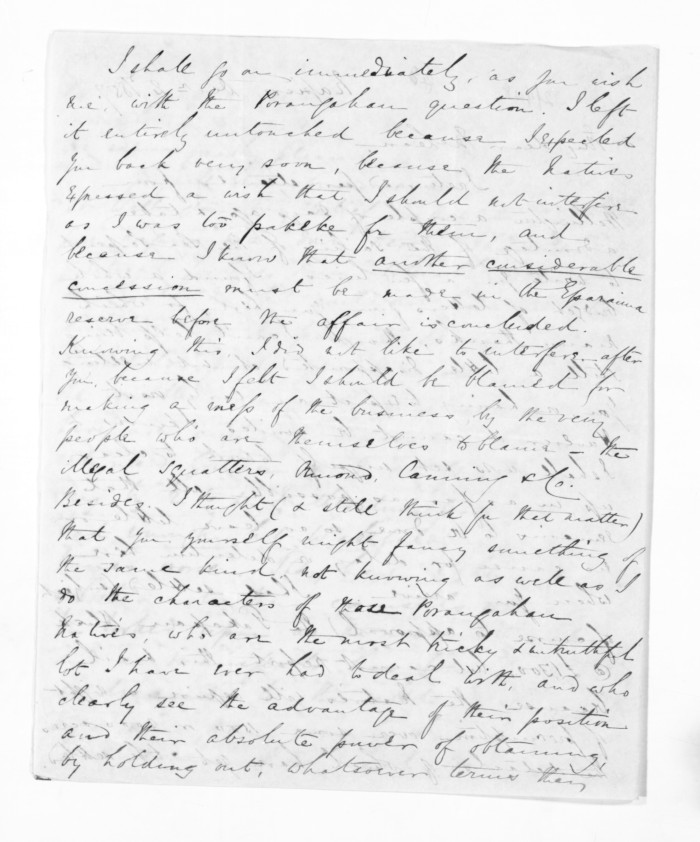 I shall go on immediately, as you wish
me, with the Porangahau question. I left
it entirely untouched because I expected
you back very soon, because the Natives
expressed a wish that I should not interfere
as I was too pakeke for them, and
because I know that another considerable
concession must be made in the Eparaima
reserve before the affair is concluded.
Knowing this I did not like to interfere after
you, because I felt I should be blamed for
making a mess of the business by the very
people who are themselves to blame - the
illegal squatters, Ormond, Canning & Co.
Besides, I thought (& still think for that matter)
that you yourself might fancy something of
the same kind, not knowing as well as I
do the characters of these Porangahau
Natives, who are the most tricky & untruthful
lot I have ever had to deal with, and who
clearly see the advantage of their position
and their absolute power of obtaining,
by holding out, whatsoever terms they